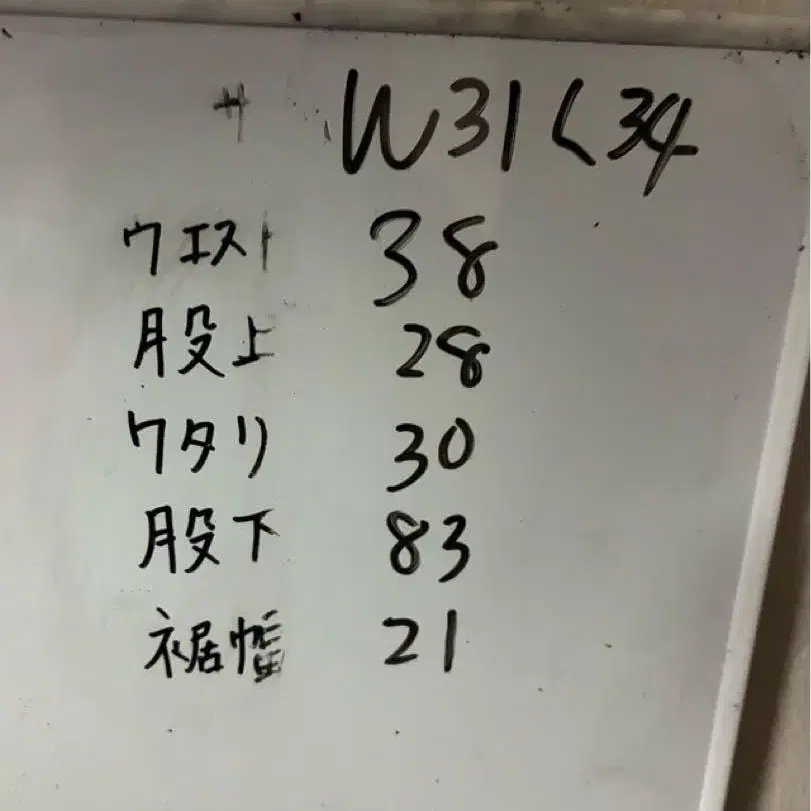 W31L34
ウエスト 38
股上 28
ワタリ 30
股下 83
裾幅 21